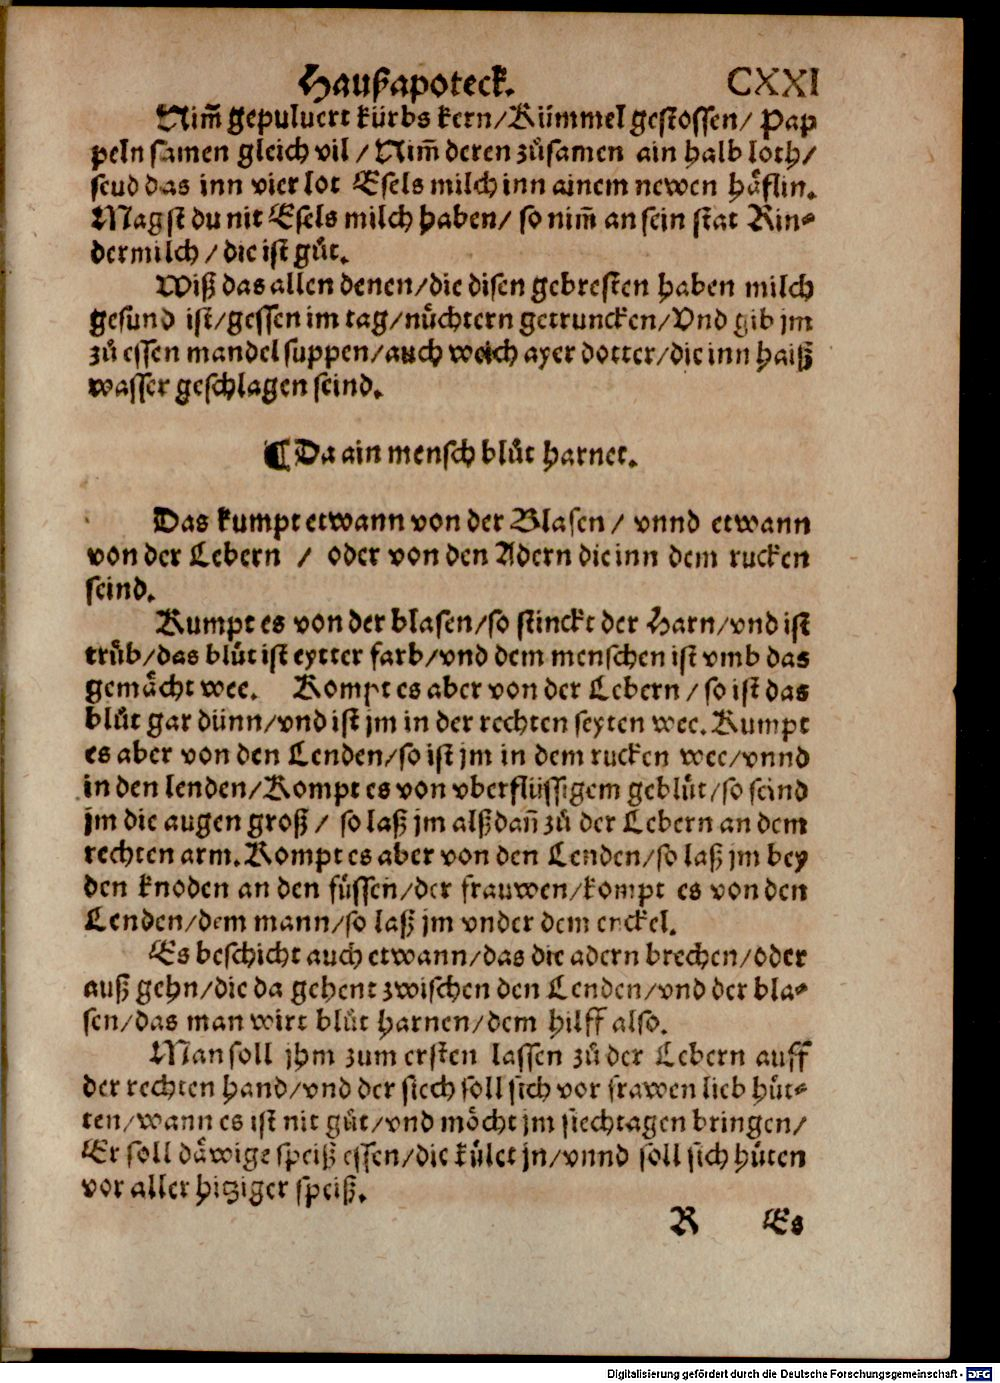 Haußapoteck. CXXI
Nim̄ gepuluert kürbs kern/Kümmel gestossen/ Pap
peln samen gleich vil / Nim̄ deren zůsamen ain halb loth/
seud das inn vier lot Esels milch inn ainem newen häflin.
Magst du nit Esels milch haben/ so nim̄ an sein stat Rin⸗
dermilch / die ist gůt.
Wiß das allen denen/die disen gebresten haben milch
gesund ist/gessen im tag/nüchtern getruncken/Vnd gib jm
zů essen mandel suppen/auch weich ayer dotter/die inn haiß
wasser geschlagen seind.
¶ Da ain mensch blůt harnet.
Das kumpt etwann von der Blasen/ vnnd etwann
von der Lebern / oder von den Adern die inn dem rucken
seind.
Kumpt es von der blasen/so stinckt der Harn/vnd ist
trůb/das blůt ist eytter farb/vnd dem menschen ist vmb das
gemächt wee. Kompt es aber von der Lebern/so ist das
blůt gar dünn/vnd ist jm in der rechten seyten wee. Kumpt
es aber von den Lenden/so ist jm in dem rucken wee/vnnd
in den lenden/Kompt es von vberflüssigem geblůt/so seind
jm die augen groß/ so laß jm alßdan̄ zů der Lebern an dem
rechten arm. Kompt es aber von den Lenden/so laß jm bey
den knoden an den füssen/der frauwen/kompt es von den
Lenden/dem mann/so laß jm vnder dem enckel.
Es beschicht auch etwann/das die adern brechen/oder
auß gehn/die da gehent zwischen den Lenden/vnd der bla⸗
sen/das man wirt blůt harnen/dem hilff also.
Man soll jhm zum ersten lassen zů der Lebern auff
der rechten hand/vnd der siech soll sich vor frawen lieb hüt⸗
ten/wann es ist nit gůt/vnd möcht jm siechtagen bringen/
Er soll däwige speiß essen/die kület jn/vnnd soll sich hüten
vor aller hitziger speiß.
R Es
Digitalisierung gefördert durch die Deutsche Forschungsgemeinschaft - DFG